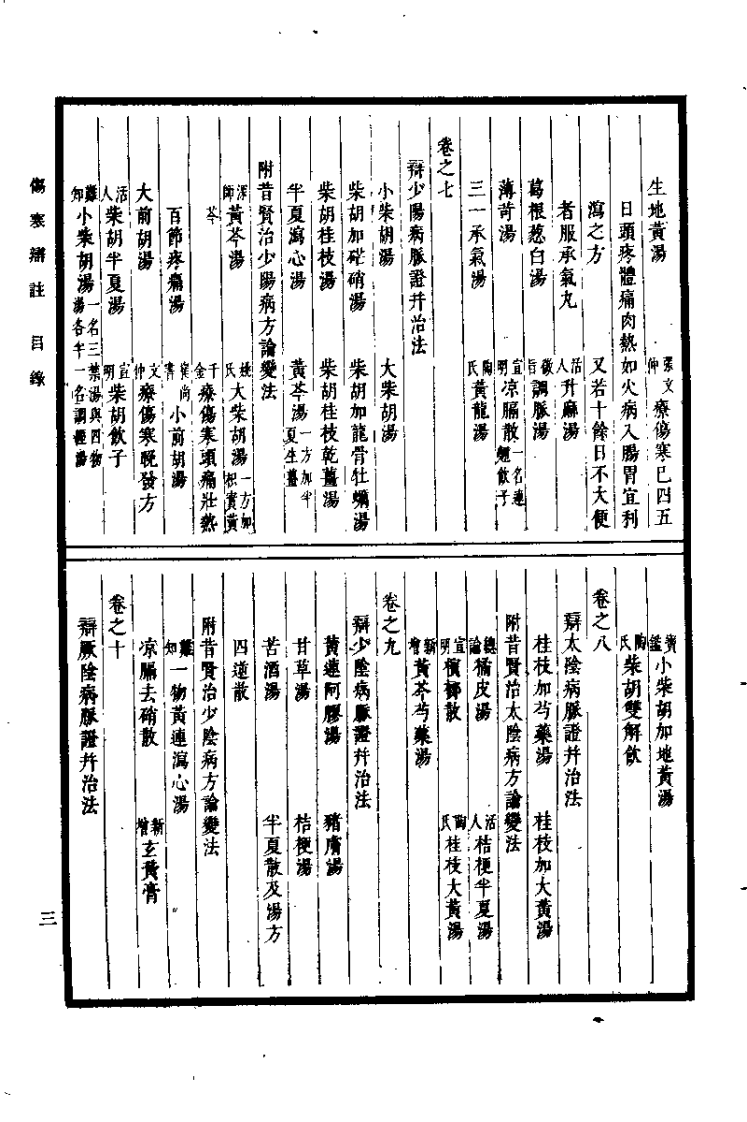 傷寒辯註 目錄
三
生地黃湯 張文仲療傷寒已四五
日頭疼體痛肉熱如火病入腸胃宜利
瀉之方 又若十餘日不大便
者服承氣丸 活人升麻湯
葛根葱白湯 徵旨調脈湯
薄荷湯 宣明凉膈散一名連翹飲子
三一承氣湯 陶氏黃龍湯
卷之七
辯少陽病脈證并治法
小柴胡湯 大柴胡湯
柴胡加硭硝湯 柴胡加龍骨牡蠣湯
柴胡桂枝湯 柴胡桂枝乾薑湯
半夏瀉心湯 黃芩湯一方加半夏生薑
附昔賢治少陽病方論變法
深師黃芩湯 姚氏大柴胡湯一方加枳實黃
芩 千金療傷寒頭痛壯熱
百節疼痛湯 小前胡湯
大前胡湯 文仲療傷寒晚發方
活人柴胡半夏湯 宣明柴胡飲子
難知小柴胡湯一名三禁湯與四物湯各半一名調經湯
寶鑑小柴胡加地黃湯
陶氏柴胡雙解飲
卷之八
辯太陰病脈證并治法
桂枝加芍藥湯 桂枝加大黃湯
附昔賢治太陰病方論變法
總論橘皮湯 活人桔梗半夏湯
宣明檳榔散 陶氏桂枝大黃湯
新增黃芩芍藥湯
卷之九
辯少陰病脈證并治法
黃連阿膠湯 豬膚湯
甘草湯 桔梗湯
苦酒湯 半夏散及湯方
四逆散
附昔賢治少陰病方論變法
難知一物黃連瀉心湯
凉膈去硝散 新增玄黃膏
卷之十
辯厥陰病脈證并治法